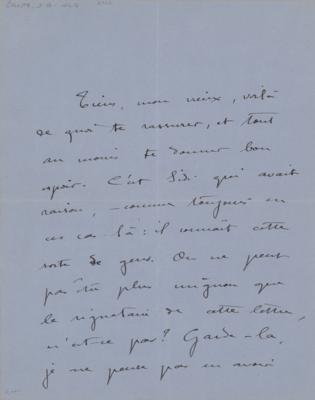 Tiens, mon vieux, voilà
de quoi te rassurer, et tout
au moins te donner bon
espoir. C'est Sidi qui avait
raison, – comme toujours en
ces cas-là : il connaît cette
sorte de gens. On ne peut
pas être plus mignon que
le signataire de cette lettre,
n'est-ce pas? Garde-la,
je ne pense pas en avoir